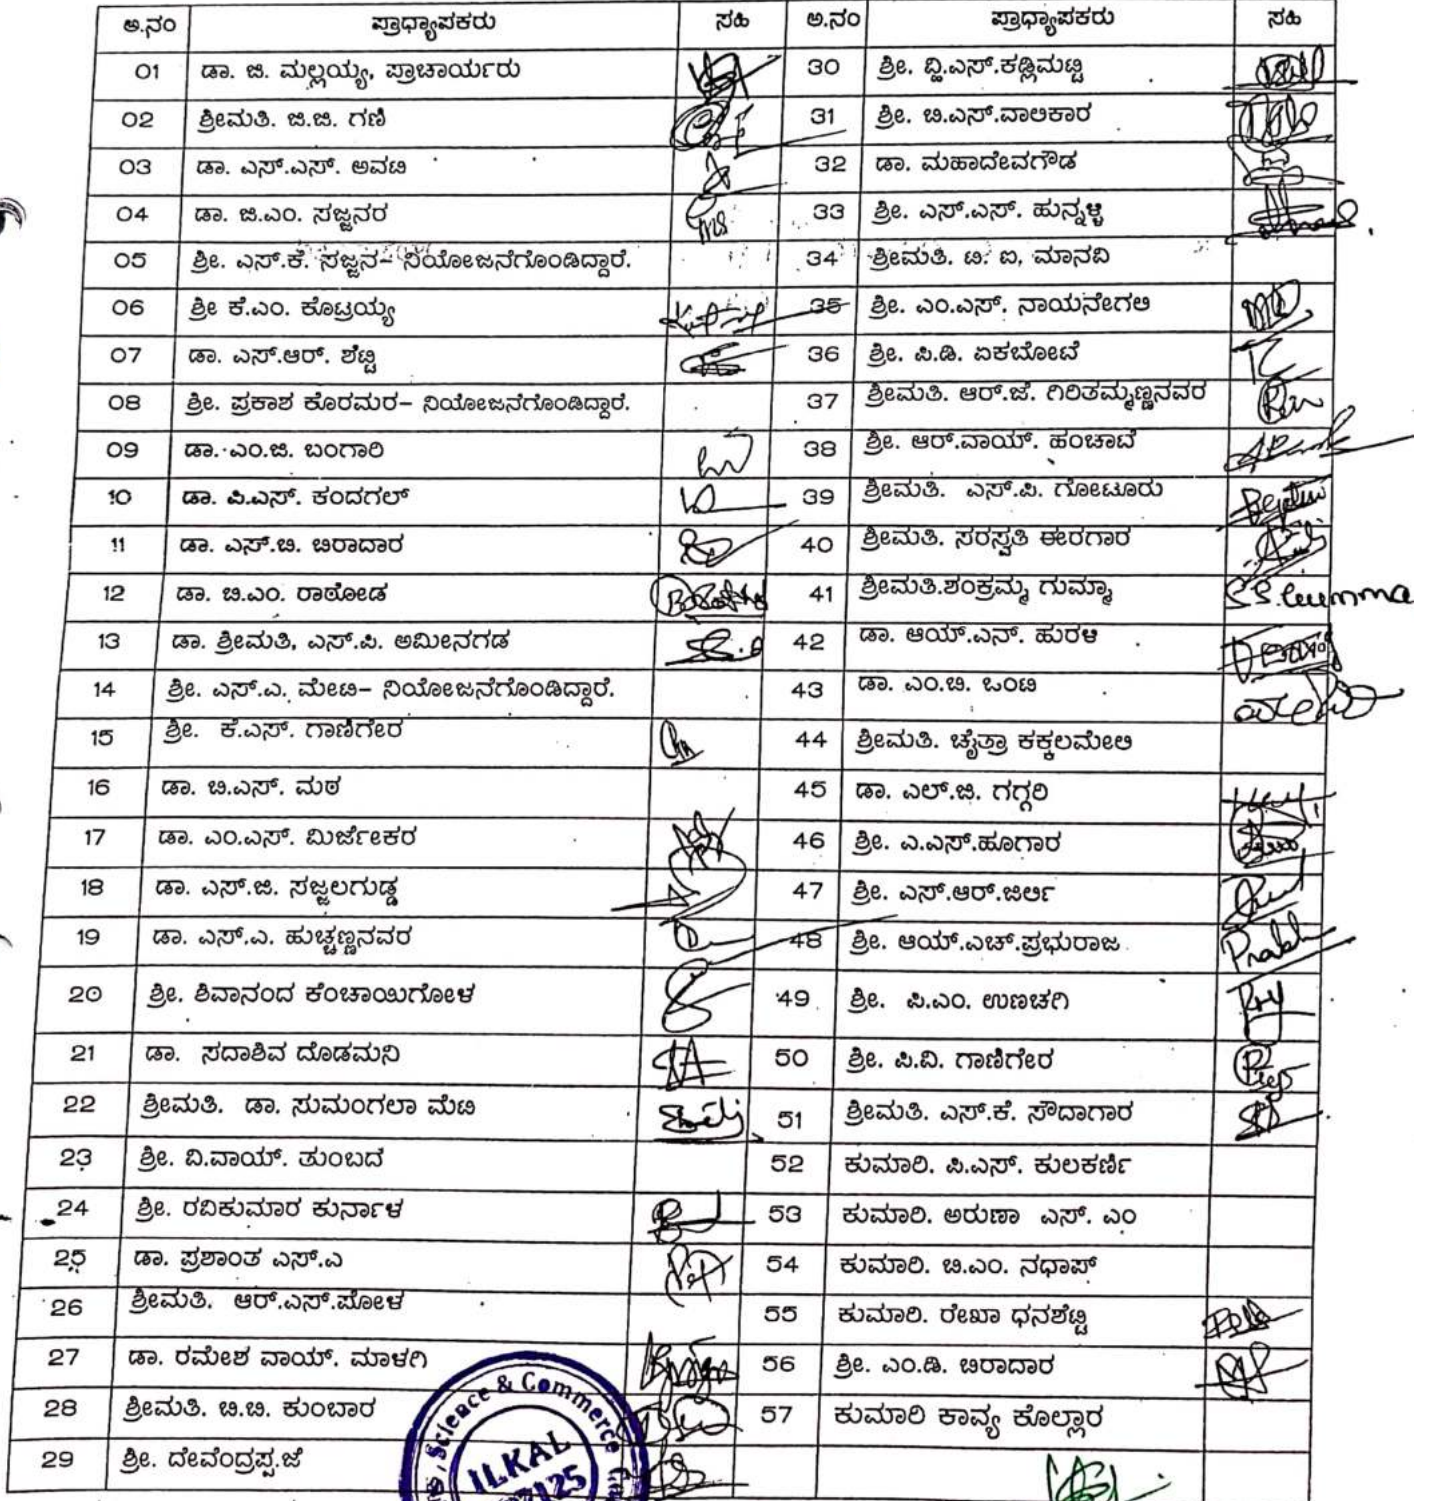 ಅ.ನಂ ಪ್ರಾಧ್ಯಾಪಕರು ಸಹಿ ಅ.ನಂ ಪ್ರಾಧ್ಯಾಪಕರು ಸಹಿ
01 ಡಾ. ಜಿ. ಮಲ್ಲಯ್ಯ, ಪ್ರಾಚಾರ್ಯರು 30 ಶ್ರೀ. ವ್ಹಿ.ಎಸ್.ಕಡ್ಲಿಮಟ್ಟಿ
02 ಶ್ರೀಮತಿ. ಜಿ.ಜಿ. ಗಣಿ 31 ಶ್ರೀ. ಬಿ.ಎಸ್.ವಾಲಿಕಾರ
03 ಡಾ. ಎಸ್.ಎಸ್. ಅವಟಿ 32 ಡಾ. ಮಹಾದೇವಗೌಡ
04 ಡಾ. ಜಿ.ಎಂ. ಸಜ್ಜನರ 33 ಶ್ರೀ. ಎಸ್.ಎಸ್. ಹುನ್ನಳ್ಳಿ
05 ಶ್ರೀ. ಎಸ್.ಕೆ. ಸಜ್ಜನ– ನಿಯೋಜನೆಗೊಂಡಿದ್ದಾರೆ. 34 ಶ್ರೀಮತಿ. ಟಿ. ಐ, ಮಾನವಿ
06 ಶ್ರೀ ಕೆ.ಎಂ. ಕೊಟ್ರಯ್ಯ 35 ಶ್ರೀ. ಎಂ.ಎಸ್. ನಾಯನೇಗಲಿ
07 ಡಾ. ಎಸ್.ಆರ್. ಶೆಟ್ಟಿ 36 ಶ್ರೀ. ಪಿ.ಡಿ. ಏಕಬೋಟೆ
08 ಶ್ರೀ. ಪ್ರಕಾಶ ಕೊರಮರ– ನಿಯೋಜನೆಗೊಂಡಿದ್ದಾರೆ. 37 ಶ್ರೀಮತಿ. ಆರ್.ಜೆ. ಗಿರಿತಮ್ಮಣ್ಣನವರ
09 ಡಾ. ಎಂ.ಜಿ. ಬಂಗಾರಿ 38 ಶ್ರೀ. ಆರ್.ವಾಯ್. ಹಂಚಾಟೆ
10 ಡಾ. ಪಿ.ಎಸ್. ಕಂದಗಲ್ 39 ಶ್ರೀಮತಿ. ಎಸ್.ಪಿ. ಗೋಟೂರು
11 ಡಾ. ಎಸ್.ಬಿ. ಬಿರಾದಾರ 40 ಶ್ರೀಮತಿ. ಸರಸ್ವತಿ ಈರಗಾರ
12 ಡಾ. ಬಿ.ಎಂ. ರಾಠೋಡ 41 ಶ್ರೀಮತಿ.ಶಂಕ್ರಮ್ಮ ಗುಮ್ಮಾ S S.Gumma
13 ಡಾ. ಶ್ರೀಮತಿ, ಎಸ್.ಪಿ. ಅಮೀನಗಡ 42 ಡಾ. ಆಯ್.ಎನ್. ಹುರಳಿ
14 ಶ್ರೀ. ಎಸ್.ಎ. ಮೇಟಿ– ನಿಯೋಜನೆಗೊಂಡಿದ್ದಾರೆ. 43 ಡಾ. ಎಂ.ಬಿ. ಒಂಟಿ
15 ಶ್ರೀ. ಕೆ.ಎಸ್. ಗಾಣಿಗೇರ 44 ಶ್ರೀಮತಿ. ಚೈತ್ರಾ ಕಕ್ಕಲಮೇಲಿ
16 ಡಾ. ಬಿ.ಎಸ್. ಮಠ 45 ಡಾ. ಎಲ್.ಜಿ. ಗಗ್ಗರಿ
17 ಡಾ. ಎಂ.ಎಸ್. ಮಿರ್ಜೇಕರ 46 ಶ್ರೀ. ಎ.ಎಸ್.ಹೂಗಾರ
18 ಡಾ. ಎಸ್.ಜಿ. ಸಜ್ಜಲಗುಡ್ಡ 47 ಶ್ರೀ. ಎಸ್.ಆರ್.ಜಿರ್ಲಿ
19 ಡಾ. ಎಸ್.ಎ. ಹುಚ್ಚಣ್ಣನವರ 48 ಶ್ರೀ. ಆಯ್.ಎಚ್.ಪ್ರಭುರಾಜ
20 ಶ್ರೀ. ಶಿವಾನಂದ ಕೆಂಚಾಯಿಗೋಳ 49 ಶ್ರೀ. ಪಿ.ಎಂ. ಉಣಚಗಿ
21 ಡಾ. ಸದಾಶಿವ ದೊಡಮನಿ 50 ಶ್ರೀ. ಪಿ.ವಿ. ಗಾಣಿಗೇರ
22 ಶ್ರೀಮತಿ. ಡಾ. ಸುಮಂಗಲಾ ಮೆಟಿ 51 ಶ್ರೀಮತಿ. ಎಸ್.ಕೆ. ಸೌದಾಗಾರ
23 ಶ್ರೀ. ವಿ.ವಾಯ್. ತುಂಬದೆ 52 ಕುಮಾರಿ. ಪಿ.ಎಸ್. ಕುಲಕರ್ಣಿ
24 ಶ್ರೀ. ರವಿಕುಮಾರ ಕುರ್ನಾಳ 53 ಕುಮಾರಿ. ಅರುಣಾ ಎಸ್. ಎಂ
25 ಡಾ. ಪ್ರಶಾಂತ ಎಸ್.ಎ 54 ಕುಮಾರಿ. ಬಿ.ಎಂ. ನಧಾಫ್
26 ಶ್ರೀಮತಿ. ಆರ್.ಎಸ್.ಪೋಳ 55 ಕುಮಾರಿ. ರೇಖಾ ಧನಶೆಟ್ಟಿ
27 ಡಾ. ರಮೇಶ ವಾಯ್. ಮಾಳಗಿ 56 ಶ್ರೀ. ಎಂ.ಡಿ. ಬಿರಾದಾರ
28 ಶ್ರೀಮತಿ. ಬಿ.ಬಿ. ಕುಂಬಾರ 57 ಕುಮಾರಿ ಕಾವ್ಯ ಕೊಲ್ಲಾರ
29 ಶ್ರೀ. ದೇವೆಂದ್ರಪ್ಪ.ಜೆ
Science & Commerce
ILKAL